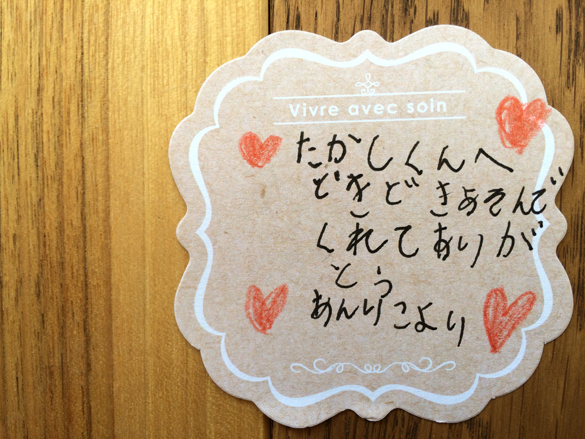 Vivre avec soin
たかしくんへ
どきどきあそんで
くれてありが
とう
あんりこより